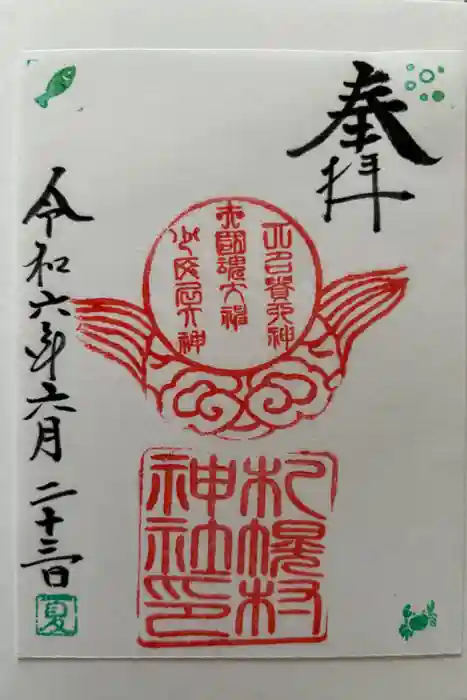 奉拝
大己貴大神
大國魂大神
少彦名大神
札幌村
神社印
令和六年六月二十三日
夏